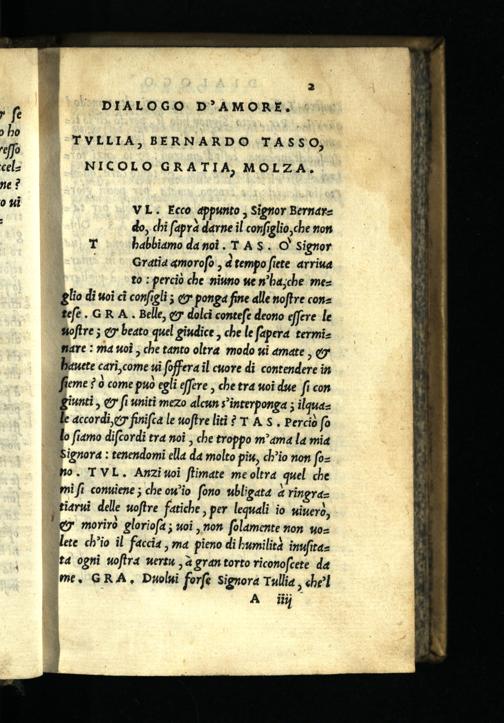 r se
o ho
resso
ccel=
ne ?
to ui
2
DIALOGO D'AMORE.
TVLLIA, BERNARDO TASSO,
NICOLO GRATIA, MOLZA.
T
VL. Ecco appunto, Signor Bernar=
do, chi saprà darne il consiglio, che non
habbiamo da noi. TAS. O' Signor
Gratia amoroso, à tempo siete arriua
to: perciò che niuno ue n'ha, che me=
glio di uoi ci consigli; & ponga fine alle nostre con=
tese. GRA. Belle, & dolci contese deono essere le
uostre; & beato quel giudice, che le sapera termi=
nare: ma uoi, che tanto oltra modo ui amate, &
hauete cari, come ui soffera il cuore di contendere in
sieme? ò come può egli essere, che tra uoi due si con
giunti, & si uniti mezo alcun s'interponga; ilqua=
le accordi, & finisca le uostre liti? TAS. Perciò so
lo siamo discordi tra noi, che troppo m'ama la mia
Signora: tenendomi ella da molto piu, ch'io non so=
no. TVL. Anzi uoi stimate me oltra quel che
mi si conuiene; che ou'io sono ubligata à ringra=
tiarui delle uostre fatiche, per lequali io uiuerò,
& morirò gloriosa; uoi, non solamente non uo=
lete ch'io il faccia, ma pieno di humilità inusita=
ta ogni uostra uertu, à gran torto riconoscete da
me. GRA. Duolui forse Signora Tullia, che'l
A iiij